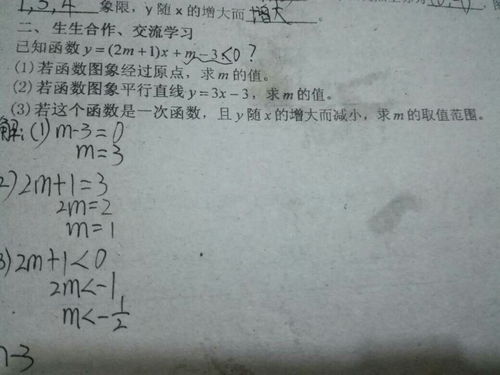 1,3,4 象限，y 随 x 的增大而 增大 。
二、生生合作、交流学习
已知函数 y=(2m+1)x+m-3<0？
(1)若函数图象经过原点，求 m 的值。
(2)若函数图象平行直线 y=3x-3，求 m 的值。
(3)若这个函数是一次函数，且 y 随 x 的增大而减小，求 m 的取值范围。
解：(1) m-3=0
m=3
2) 2m+1=3
2m=2
m=1
3) 2m+1<0
2m<-1
m<-1/2
-3